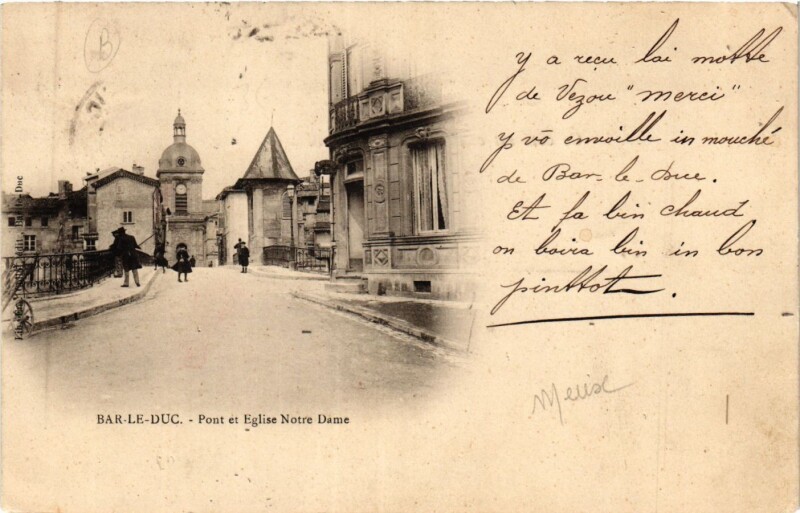 B
y a reçu lai motte
de Vezou "merci"
y vō envoille in mouché
de Bar-le-duc.
Et fa bin chaud
on boira bin in bon
pinttot.
Meuse
BAR-LE-DUC. - Pont et Eglise Notre Dame